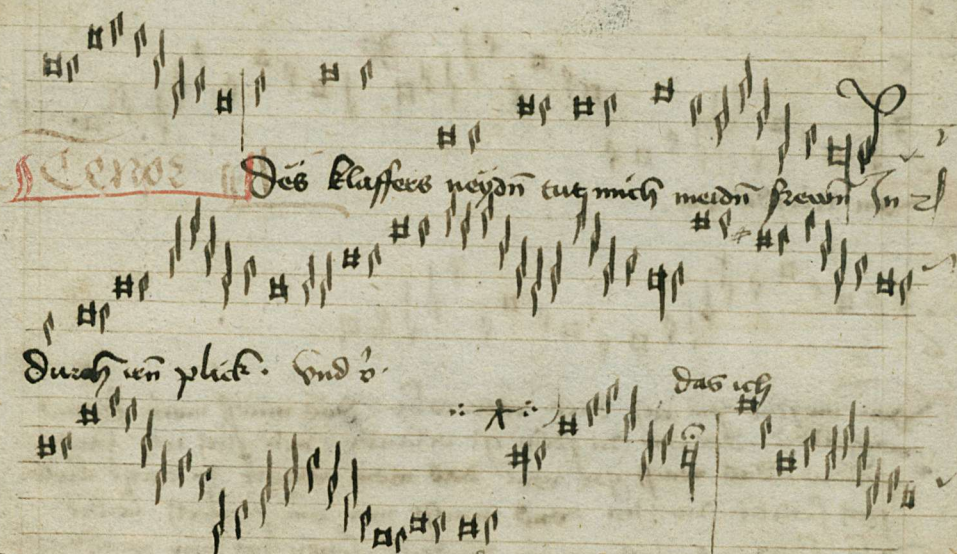 Tenor
Des klaffers neydñ tut mich meidñ frewñ In
durch irñ plick. vnd
das ich